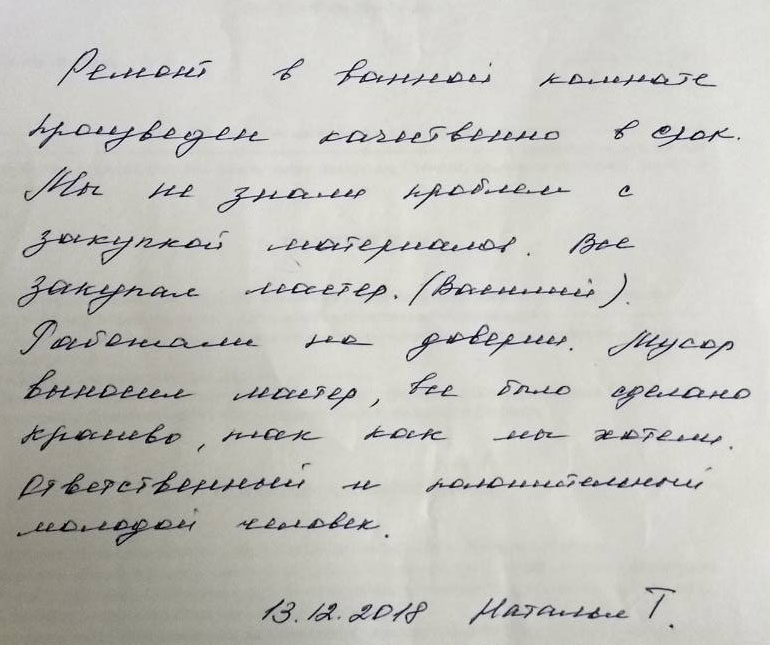 Ремонт в ванной комнате
произведен качественно в срок.
Мы не знали проблем с
закупкой материалов. Все
закупал мастер. (Василий).
Работали на доверии. Мусор
выносил мастер, все было сделано
красиво, так как мы хотели.
Ответственный и исполнительный
молодой человек.
13.12.2018 Наталья Т.